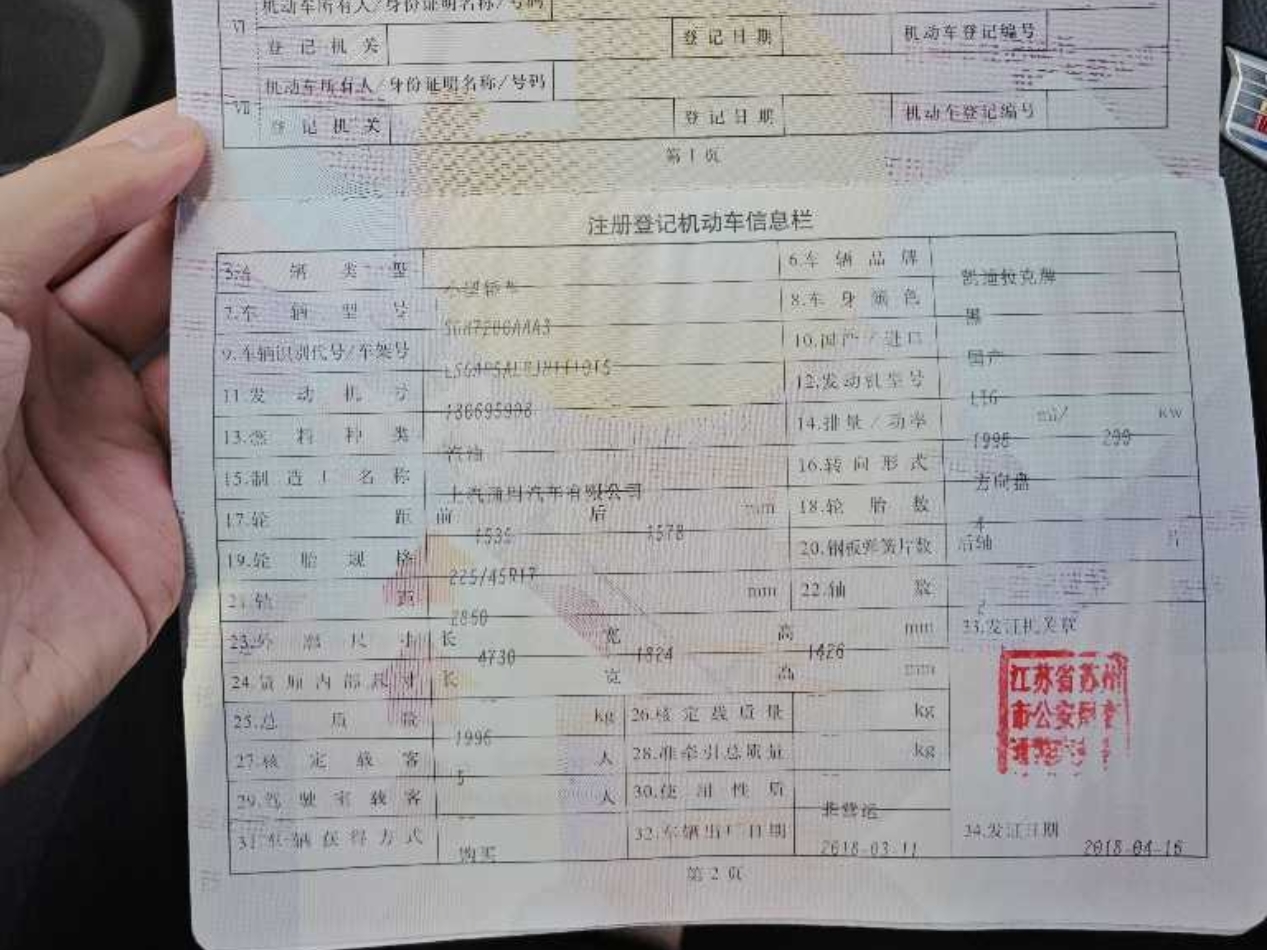 机动车所有人/身份证明名称/号码
VI
登记机关 登记日期 机动车登记编号
机动车所有人/身份证明名称/号码
VII
登记机关 登记日期 机动车登记编号
第1页
注册登记机动车信息栏
5.车辆类型 小型轿车 6.车辆品牌 凯迪拉克牌
7.车辆型号 SGM7200AAA3 8.车身颜色 黑
9.车辆识别代号/车架号 10.国产/进口 国产
11.发动机号 12.发动机型号 LTG
13.燃料种类 汽油 14.排量/功率 1998 ml/ kw
15.制造厂名称 上汽通用汽车有限公司 16.转向形式 方向盘
17.轮距 前 1535 后 1578 mm 18.轮胎数 4
19.轮胎规格 225/45R17 20.钢板弹簧片数 后轴 片
21.轴距 2850 mm 22.轴数 2
23.外廓尺寸 长 4730 宽 1824 高 1426 mm 33.发证机关章
24.货厢内部尺寸 长 宽 高 mm
江苏省苏州
市公安局
25.总质量 1996 kg 26.核定载质量 kg
27.核定载客 5 人 28.准牵引总质量 kg
29.驾驶室载客 人 30.使用性质 非营运
31.车辆获得方式 购买 32.车辆出厂日期 2018-03-11 34.发证日期 2018-04-16
第2页